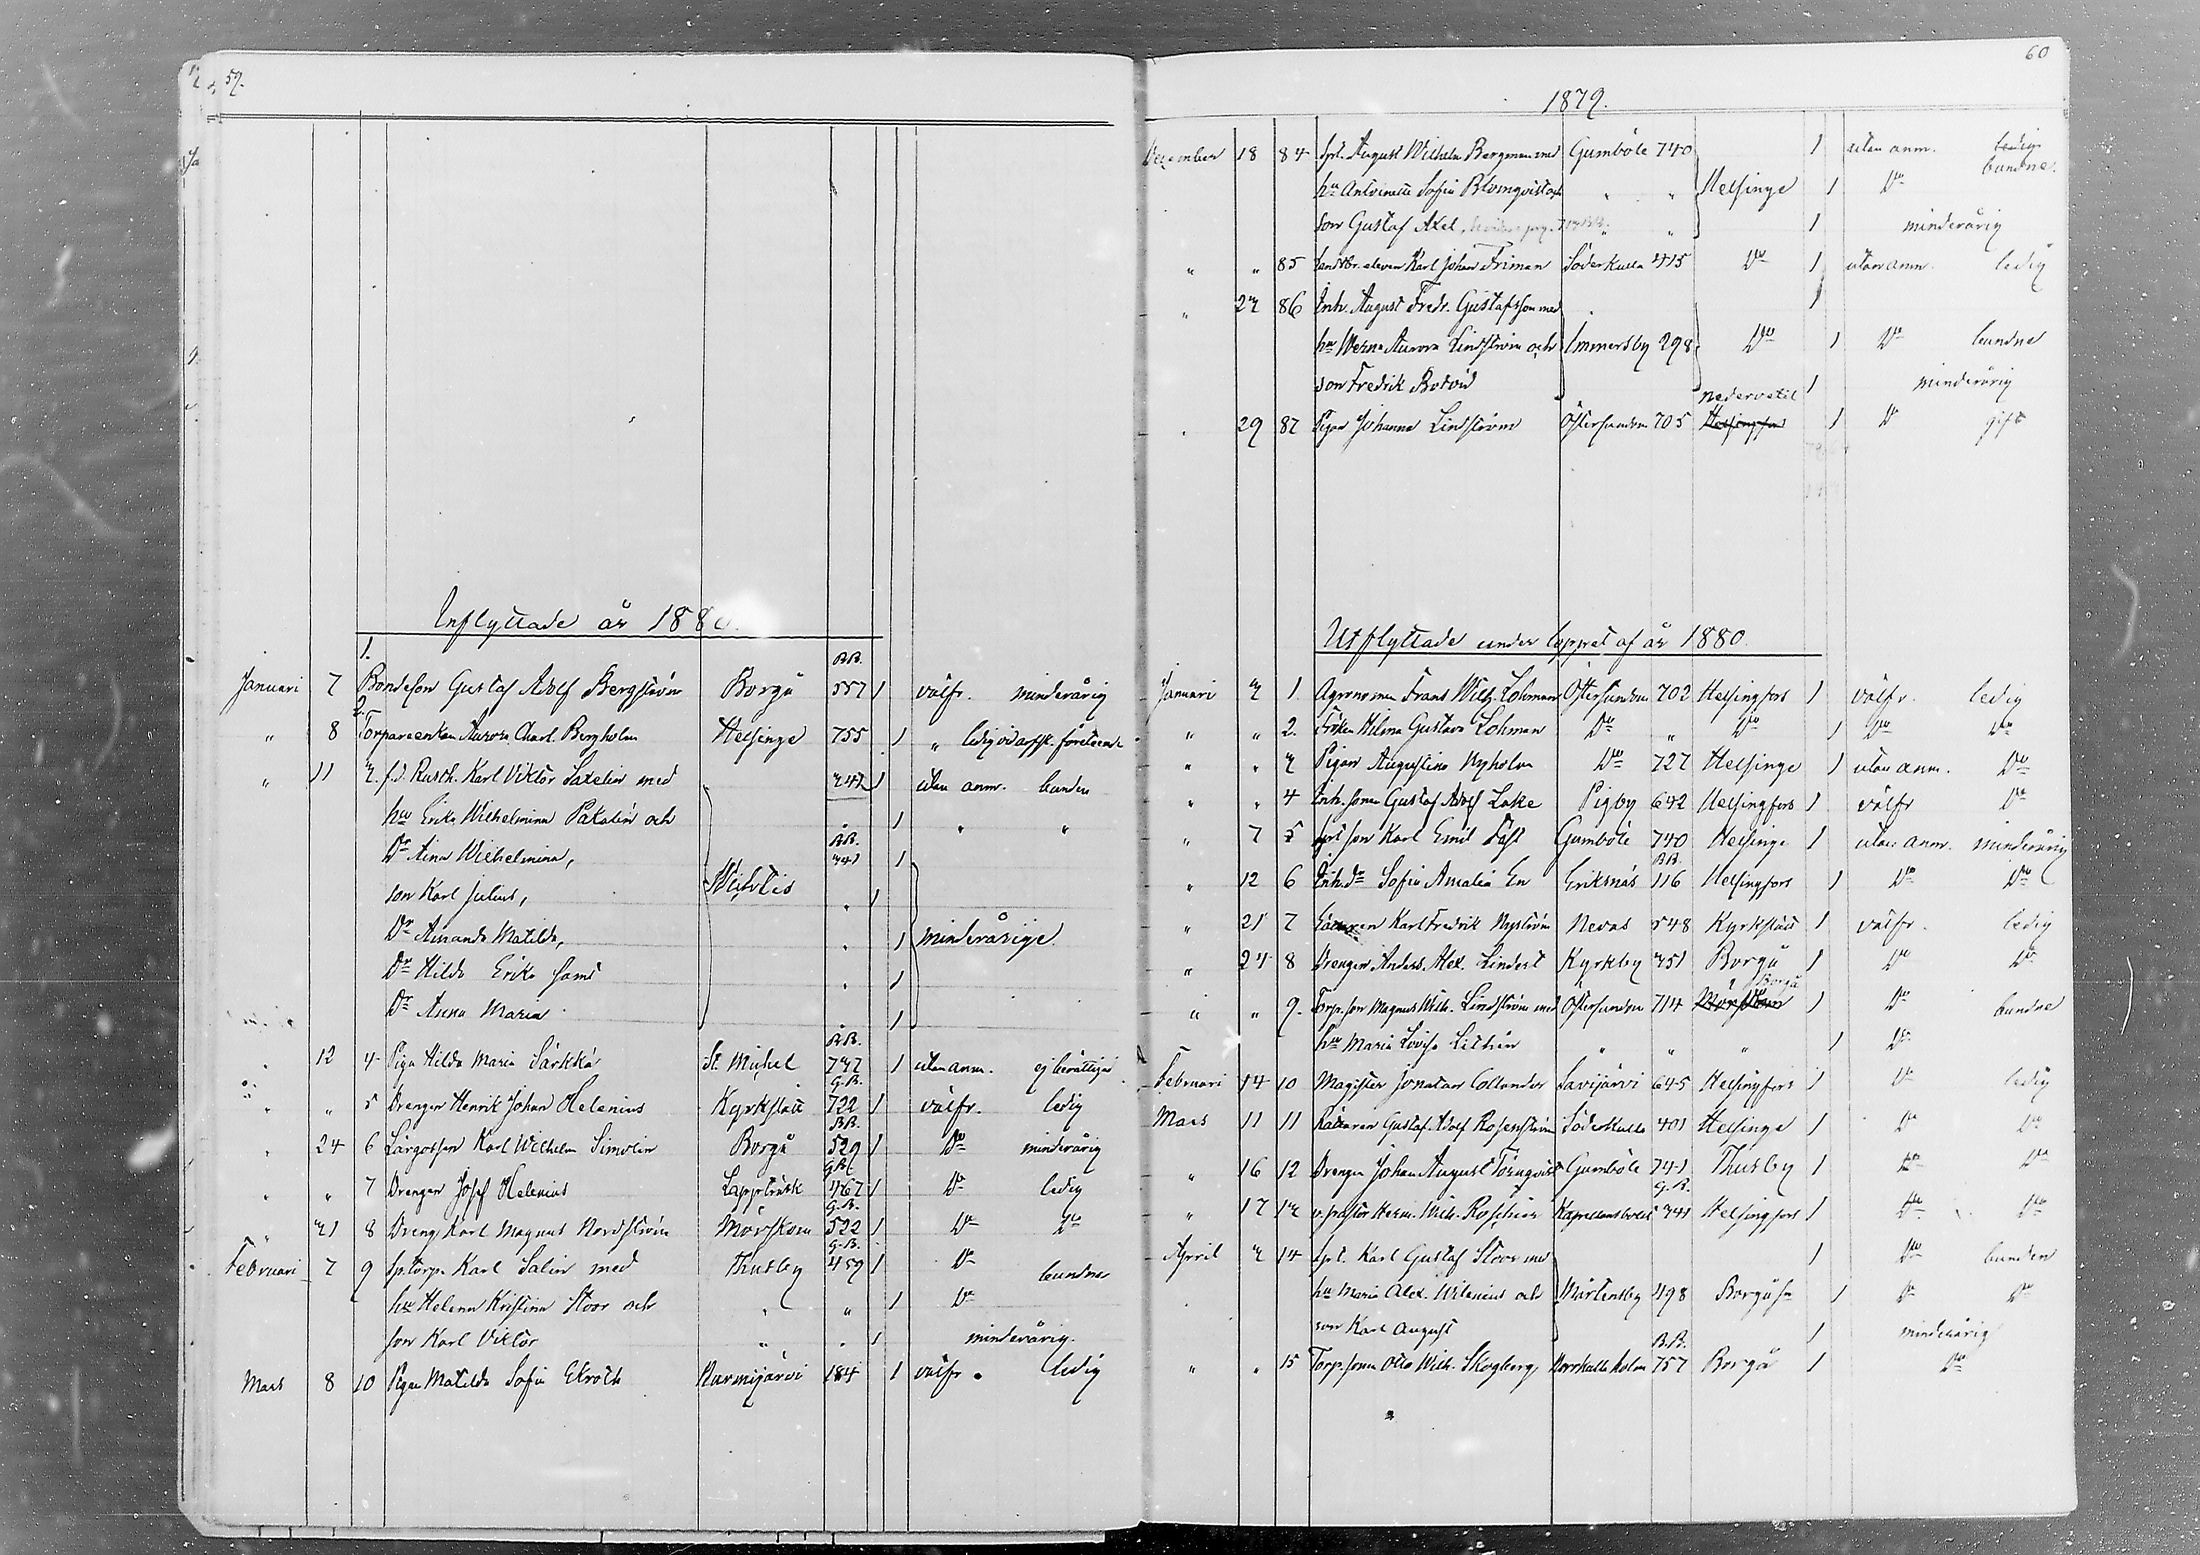 59.
Inflyttade år 1880.
1.
B.B.
Januari 7 Bondeson Gustaf Adolf Bergström Borgå 557 1 välfr. minderårig
2.
" 8 Torpareenkan Aurora Charl. Bergholm Helsinge 755 1 "
" 11 3. f.d. Rusth. Karl Viktor Satelin med 342 1 utan anm. bunden
hu Erika Wilhelmina Pakalén och " 1 " "
B.B.
Dr Aina Wilhelmina, 341 1
son Karl Julius, Wichtis " 1
Dr Amanda Matilda, " 1 minderårige
Dr Hilda Erika samt " 1
Dr Anna Maria " 1
B.B.
" 12 4 Piga Hilda Maria Särkkä St. Michel 737 1 utan anm. ej berättigad
G.B.
" " 5 Drengen Henrik Johan Helenius Kyrkslätt 722 1 välfr. ledig
B.B.
" 24 6 Lärgosson Karl Wilhelm Simolin Borgå 529 1 Do minderårig
G.B.
" " 7 Drengen Josef Helenius Lappträsk 467 1 Do ledig
G.B.
" 31 8 Dreng Karl Magnus Nordström Mörskom 522 1 Do Do
G.B.
Februari 7 9 Sp.torp. Karl Salin med Thusby 459 1 Do bundne
hu Helena Kristina Stoor och " " 1 Do
son Karl Viktor " " 1 minderårig.
Mars 8 10 Pigan Matilda Sofia Ekroth Nurmijärvi 184 1 välfr. ledig
60
1879.
December 18 84 Spt. August Wilhelm Bergman med Gumböle 740 1 utan anm. ledig
bundne.
hu Antoinette Sofia Blomqvist och " " Helsinge 1 Do
son Gustaf Axel " " 1 minderårig
" " 85 Landtbr. eleven Karl Johan Friman Söderkulla 415 Do 1 utan anm. ledig
" 27 86 Inh. August Fredr. Gustafsson med 1
hu Werna Aurora Lindström och Immersby 298 Do 1 Do bundne
son Fredrik Botvid 1 minderårig
Nedervetil
" 29 87 Pigan Johanna Lindström Östersundom 705 Helsingfors 1 Do gift
Utflyttade under loppet af år 1880.
Januari 3 1. Agronomen Frans Wilh. Lohman Östersundom 702 Helsingfors 1 välfr. ledig
" " 2. Fröken Hilma Gustava Lohman Do " Do 1 Do Do
" " 3 Pigan Augustina Nyholm Do 727 Helsinge 1 utan anm. Do
" " 4 Inh. sonen Gustaf Adolf Lake Pigby 642 Helsingfors 1 välfr Do
" 7 5 Spt son Karl Emil Fast Gumböle 740 Helsinge 1 utan anm. minderårig
B.B.
" 12 6 Inh. dr Sofia Amalia En Eriksnäs 116 Helsingfors 1 Do Do
" 21 7 Karl Fredrik Nyström Nevas 548 Kyrkslätt 1 välfr. ledig
" 24 8 Drengen Anders Alex. Lindert Kyrkby 351 Borgå 1 Do Do
Borgå
" " 9. Torp. son Magnus Wilh. Lindström med Östersundom 714 Mörskom 1 Do bundne
hu Maria Lovisa Lithén " " " 1 Do
Februari 14 10 Magister Jonatan Collander Savijärvi 645 Helsingfors 1 Do ledig
Mars 11 11 Rättaren Gustaf Adolf Rosenström Söderkulla 401 Helsinge 1 Do Do
" 16 12 Drengen Johan August Törnqvist Gumböle 741 Thusby 1 Do Do
G.B.
" 17 13 v. pastor Herm. Wilh. Roschier Kapellansbolet 341 Helsingfors 1 Do Do
April 3 14 Spt. Karl Gustaf Stoor med 1 Do bunden
hu Maria Alex. Wilenius och Mårtensby 498 Borgå sn 1 Do Do
son Karl August 1 minderårig
B.B.
" " 15 Torp. sonen Otto Wilh. Skogberg, Norrkulla holm 757 Borgå 1 Do